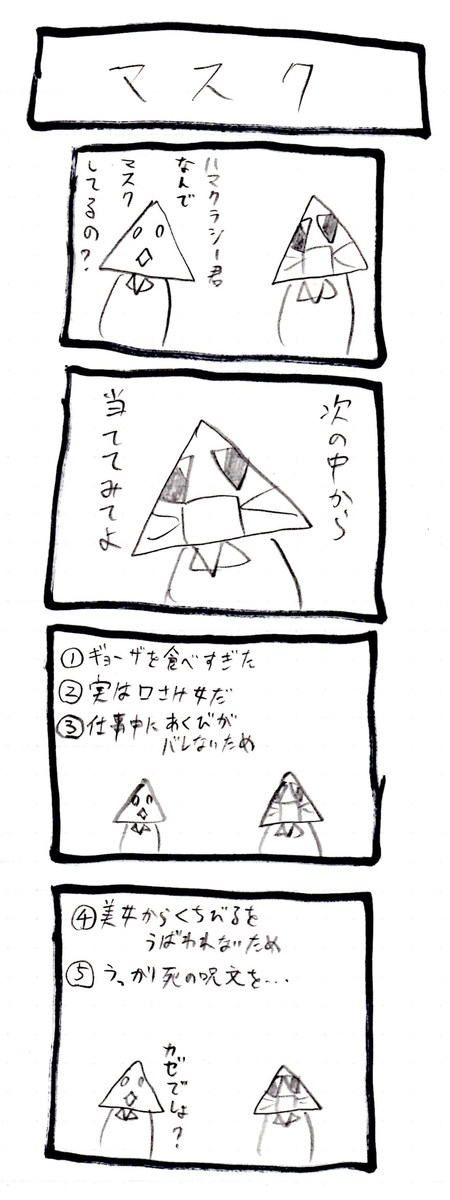 マスク
ハマクラシー君
なんで
マスク
してるの?
次の中から
当ててみてよ
①ギョーザを食べすぎた
②実は口さけ女だ
③仕事中にあくびが
バレないため
④美女からくちびるを
うばわれないため
⑤うっかり死の呪文を…
カゼでしょ?